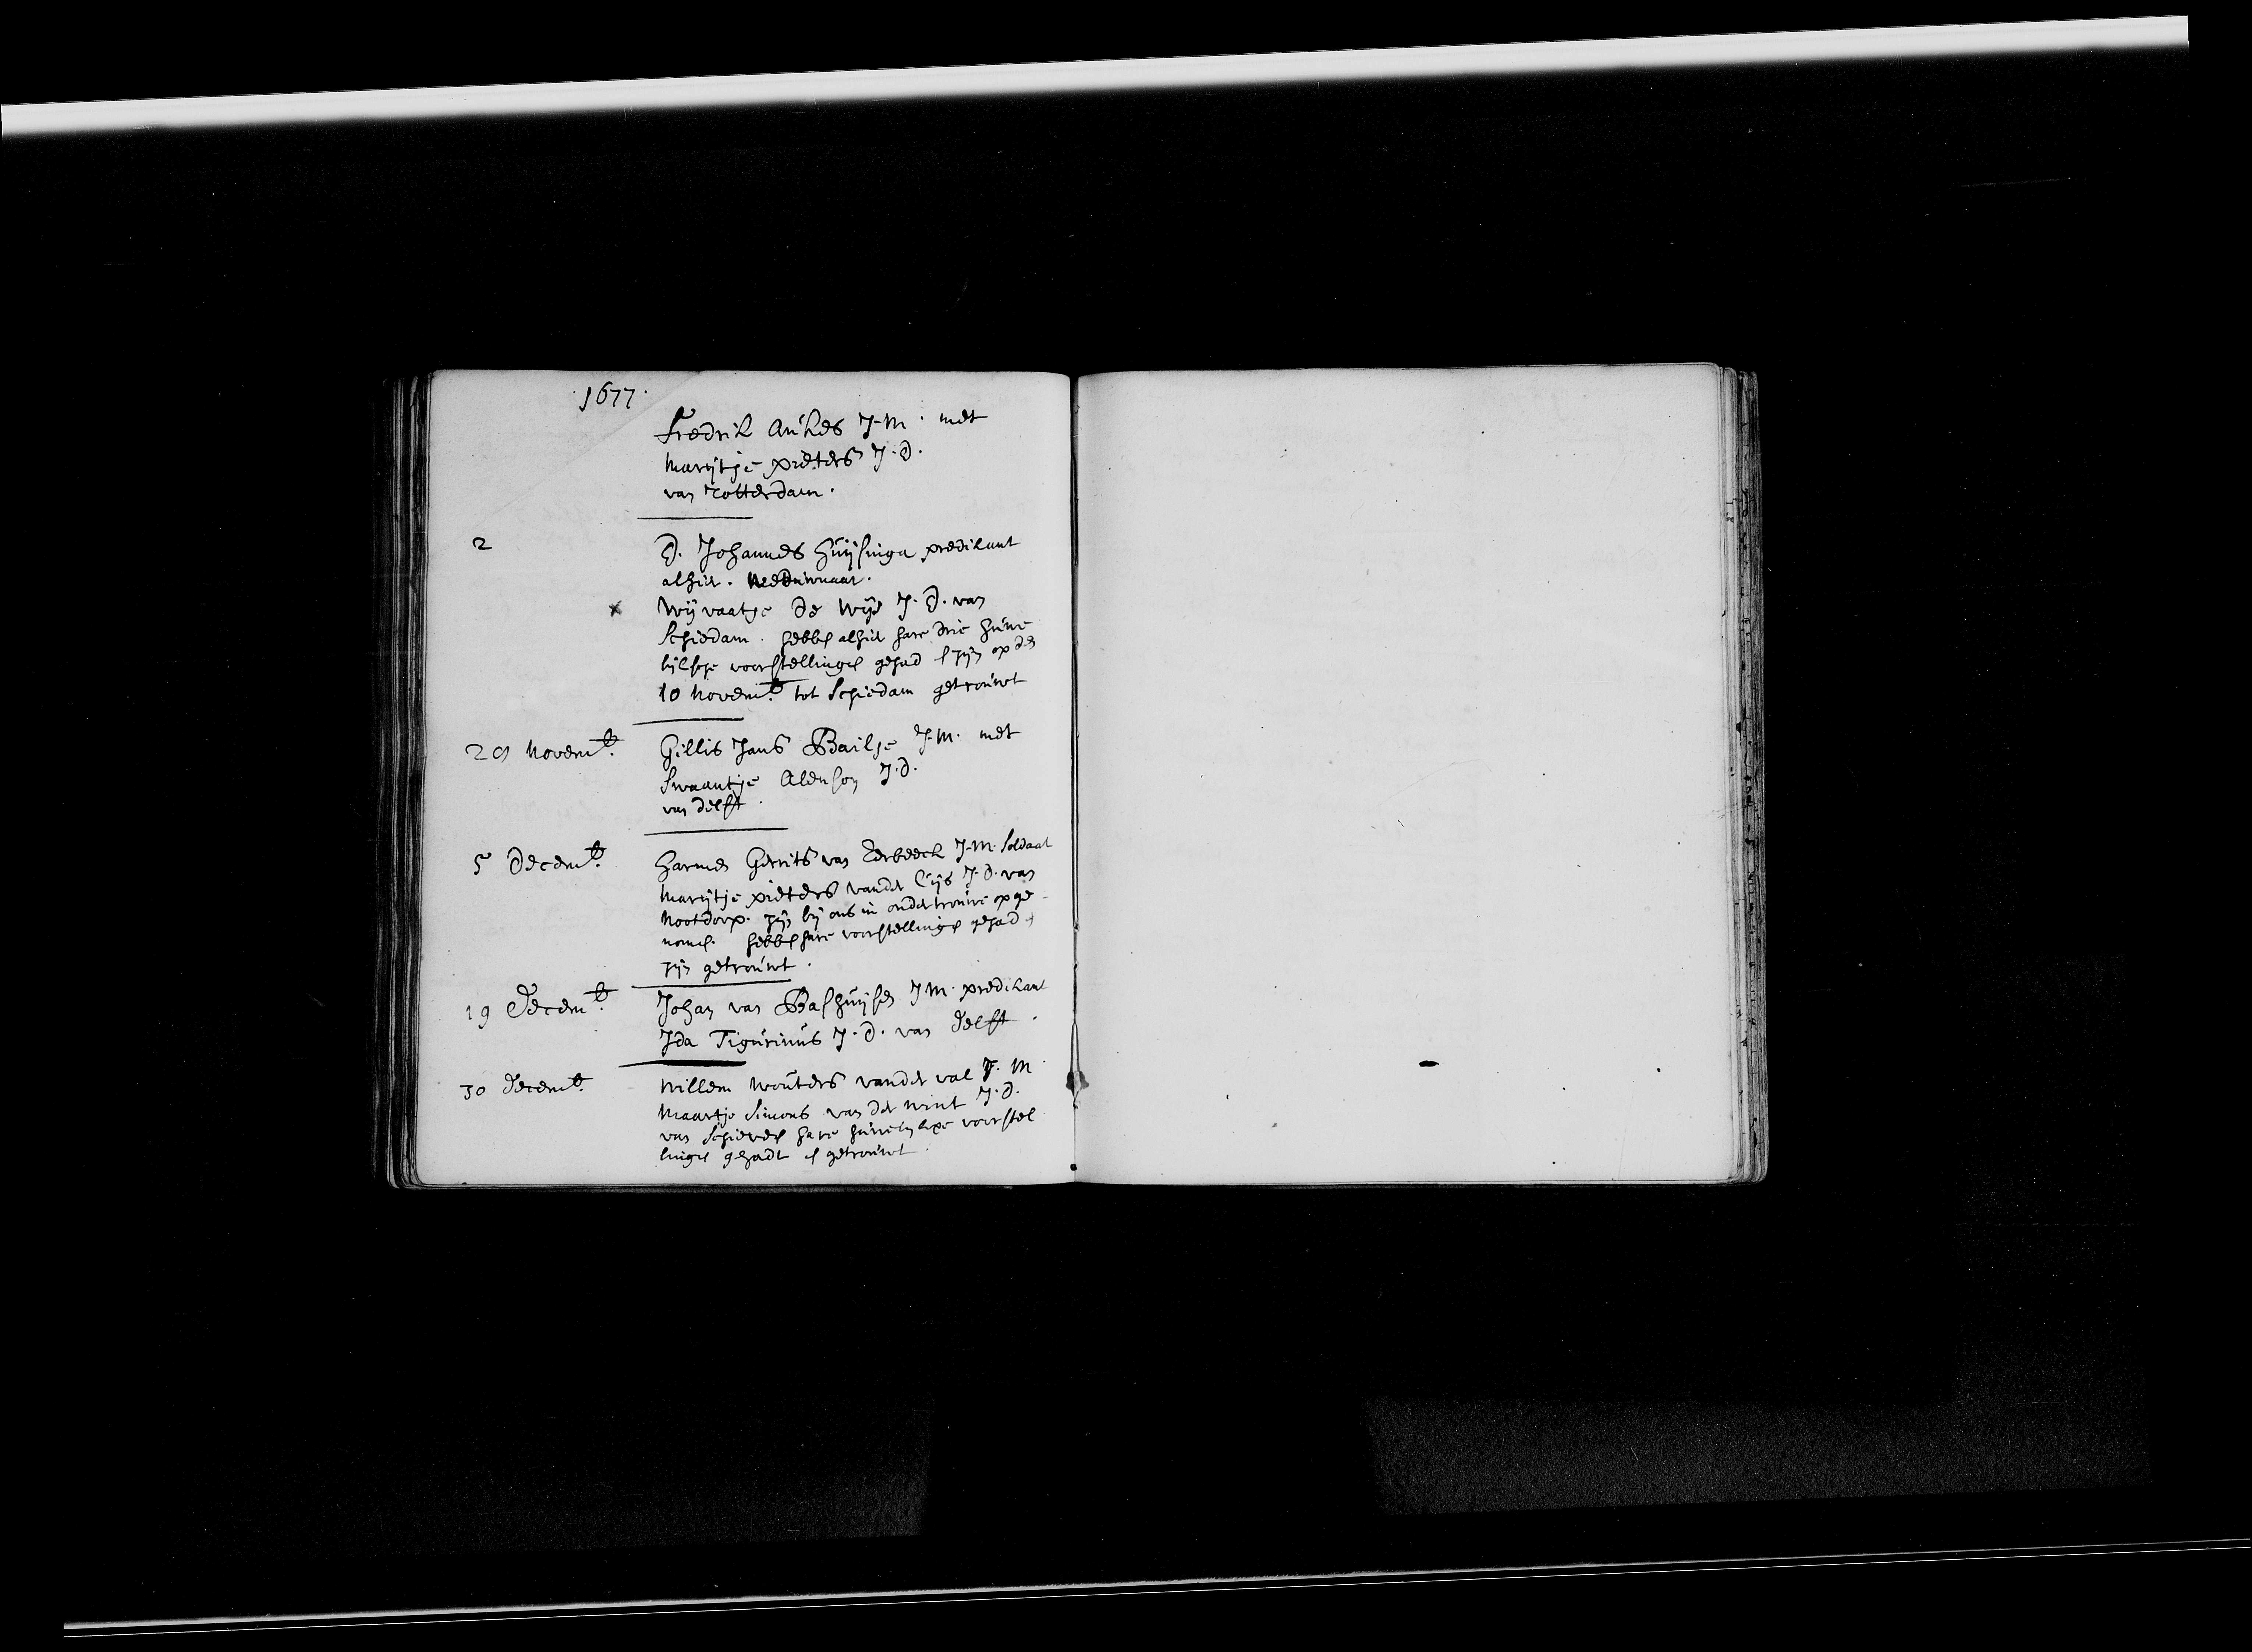 1677.
Fredrik Ankes J.M. met
Marijtje pieters J.D.
van Rotterdam.
2 D. Johannes Huijsinga predikant
alhier. Weduwnaar.
x Wijvaatje de Wijs J.D. van
Schiedam. hebben alhier hare drie huwe
lijkse voorstellingen gehad en zijn op den
10 Novemb. tot Schiedam getrouwt
20 Novemb. Gillis Jans Bailje J.M. met
Swaantje Alenson J.D.
van delft.
5 Decemb. Harmen Gerrits van Eerbeeck J.M. Soldaat
Marijtje pieters vander Cijs J.D. van
Nootdorp. zijn bij ons in ondertrouwe opge-
nomen. hebben hare voorstellingen gehad en
zijn getrouwt.
19 Decemb. Johan van Bashuijsen J.M. predikant
Ida Tigurinus J.D. van Delft.
30 Decemb. Willem Wouters vander val J.M.
Maartje Simons van der Wint J.D.
van Schie hare huwelijxe voorstel
lingen gehadt en getrouwt.